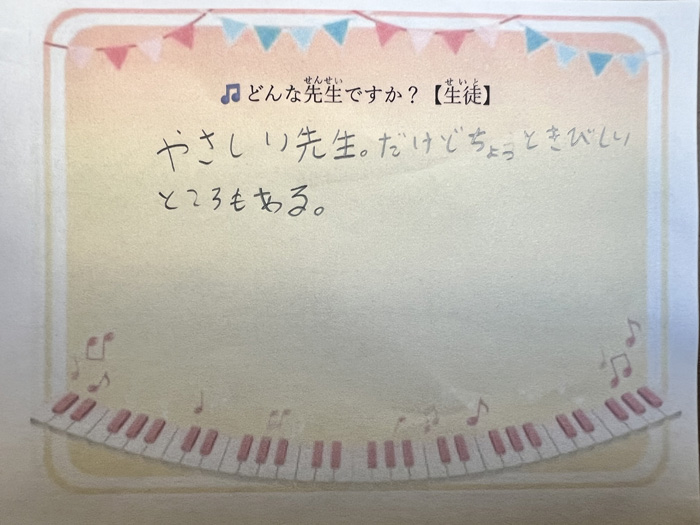 どんな先生ですか？【生徒】
やさしい先生。だけどちょっときびしい
ところもある。